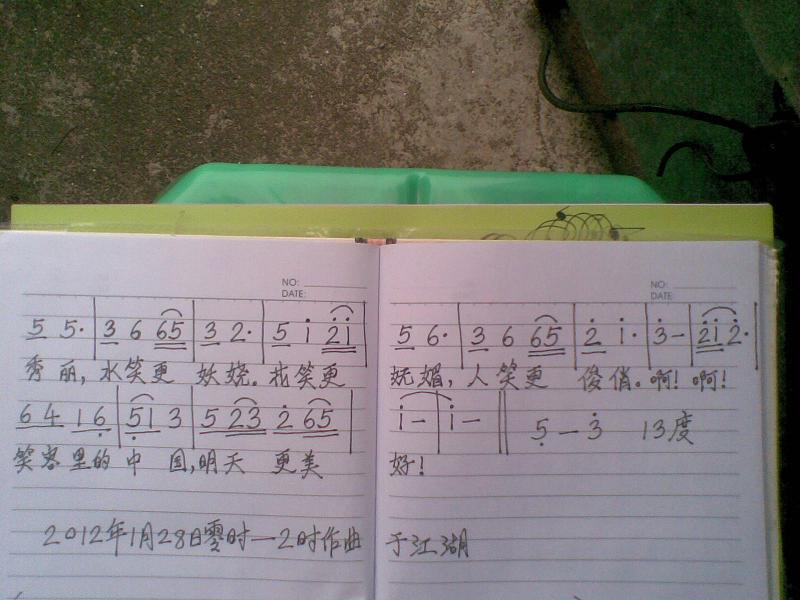 NO: NO:
DATE: DATE:
5 5· | 3 6 65 | 3 2· | 5 i 2i | 5 6· | 3 6 65 | 2 i· | 3– | 2i2· |
秀丽,水笑更 妖娆。花笑更 妩媚,人笑更 俊俏。啊!啊!
64 16 | 51 3 | 5 23 2 65 | i– | i– || 5—3 13度
笑容里的中国,明天 更美 好!
2012年1月28日零时—2时作曲 于江湖